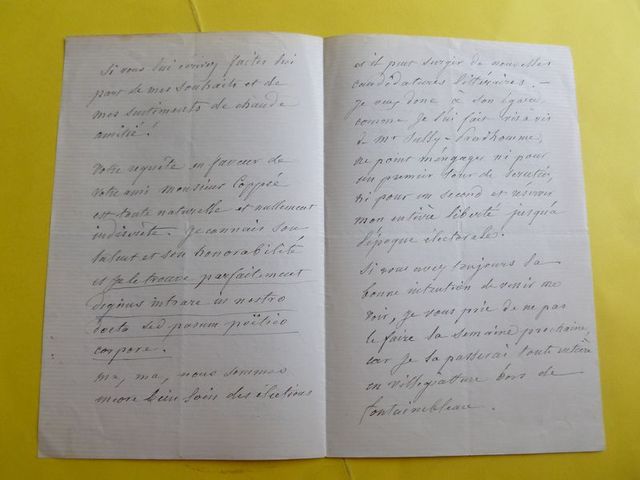 Si vous lui écrivez faites lui
part de mes souhaits et de
mes sentiments de chaude
amitié!
Votre requête en faveur de
votre ami monsieur Coppée
est toute naturelle et nullement
indiscrète. Je connais son
talent et son honorabilité
et je le trouve parfaitement
dignus intrare in nostro
docto sed parum poëtico
corpore.
Ma, ma, nous sommes
encore bien loin des élections
et il peut surgir de nouvelles
candidatures littéraires. -
Je veux donc à son égard,
comme je l'ai fait vis à vis
de Mr Sully-Prudhomme,
ne point m'engager ni pour
un premier tour de scrutin,
ni pour un second et réserver
mon entière liberté jusqu'à
l'époque électorale.
Si vous avez toujours la
bonne intention de venir me
voir, je vous prie de ne pas
le faire la semaine prochaine,
car je la passerai toute entière
en villégiature hors de
Fontainebleau.